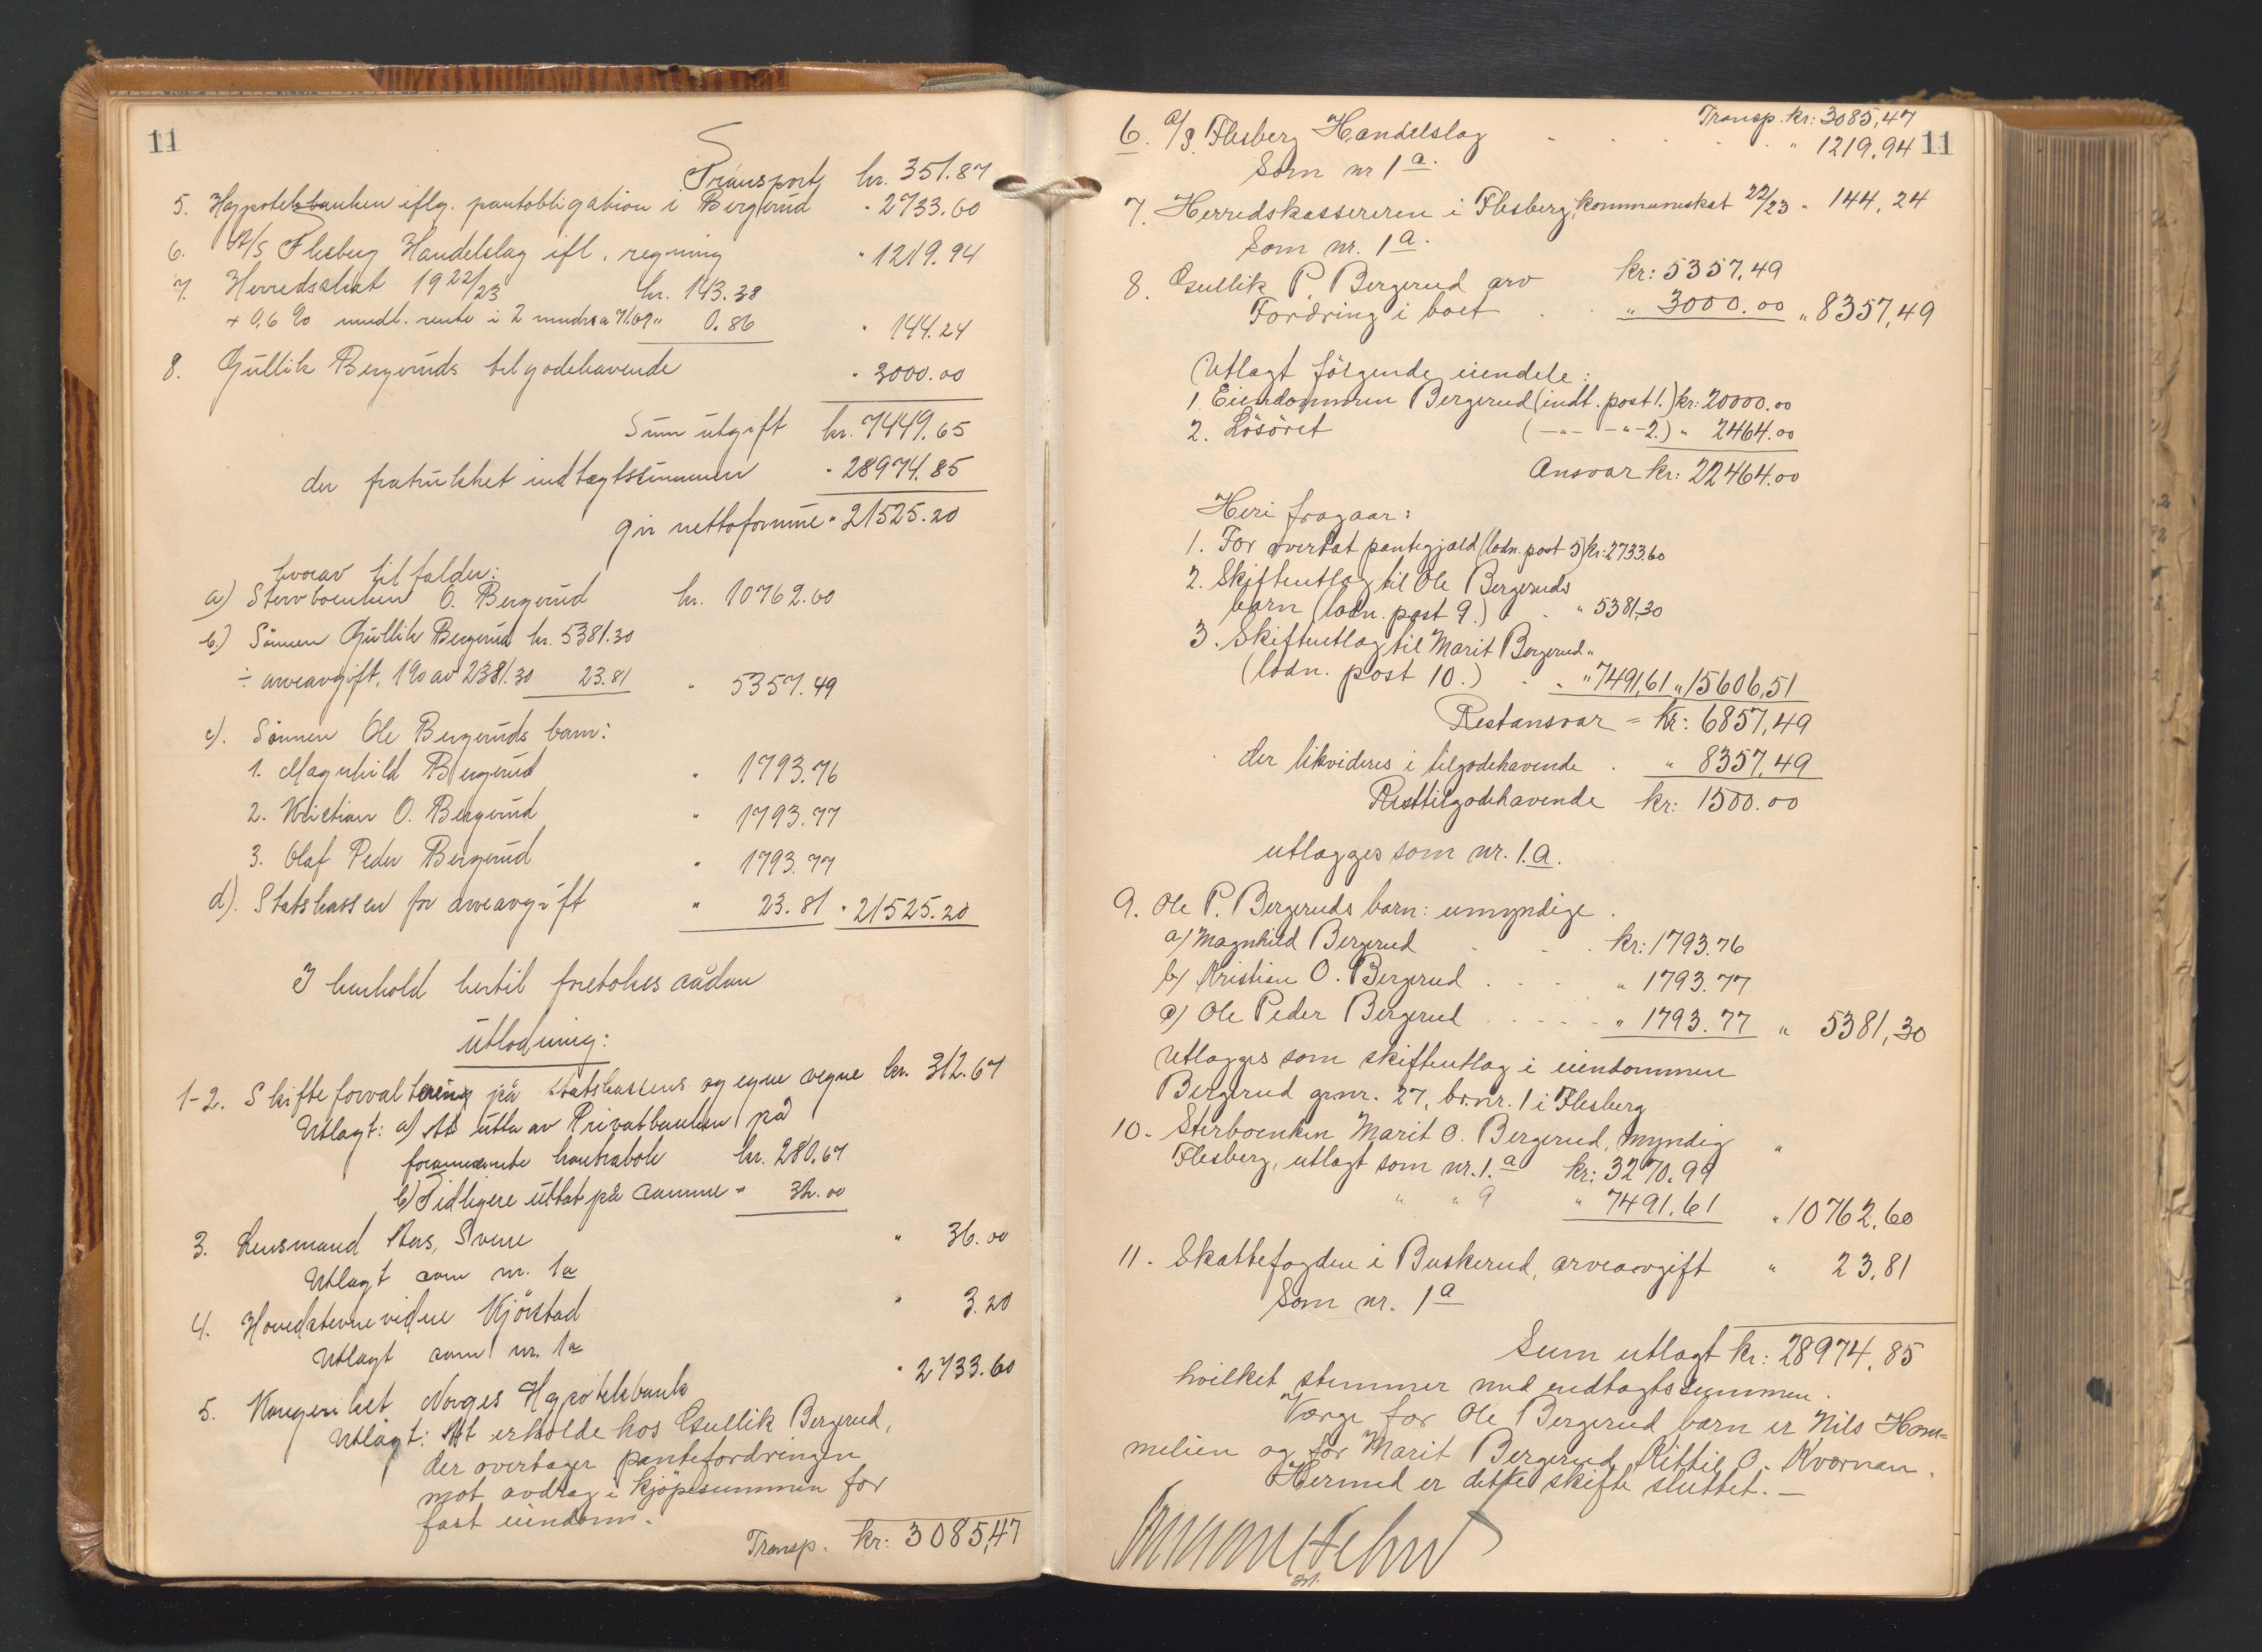 11
Transport kr. 351.87
5. Hypotekbanken iflg. pantobligation i Bergerud " 2733.60
6. A/S Flesberg Handelslag ifl. regning " 1219.94
7. Herredsskat 1922/23 kr. 143.38
+ 0,6 % mndl. rente i 2 mndr. a 71.69 " 0.86 " 144.24
8. Gullik Bergeruds tilgodehavende " 3000.00
Sum utgift kr. 7449.65
der fratrukket indtægtssummen " 28974.85
gir nettoformue " 21525.20
hvorav tilfalder:
a) Stervboenken O. Bergerud kr. 10762.60
b) Sönnen Gullik Bergerud kr. 5381.30
÷ arveavgift, 1% av 2381.30 23.81 " 5357.49
c). Sönnen Ole Bergeruds barn:
1. Magnhild Bergerud " 1793.76
2. Kristian O. Bergerud " 1793.77
3. Olaf Peder Bergerud " 1793.77
d). Statskassen for arveavgift " 23.81 " 21525.20
I henhold hertil foretokes sådan
utlodning:
1-2. Skifteforvaltning på statskassens og egne vegne kr. 312.67
Utlagt: a) At utta av Privatbanken på
foranevnte kontrabok kr. 280.67
b) Tidligere uttat på samme " 32.00
3. Lensmand Aas, Svene " 36.00
Utlagt som nr. 1a
4. Hovedstevnevidne Kjörstad " 3.20
Utlagt som nr. 1a
5. Kongeriket Norges Hypotekbank " 2733.60
Utlagt: At erholde hos Gullik Bergerud,
der overtager pantefordringen
mot avdrag i kjöpesummen for
fast eiendom.
Transp. kr: 3085,47
Transp. kr: 3085,47
11
6. A/S. Flesberg Handelslag . . . . . " 1219.94
Som nr 1a.
7. Herredskassereren i Flesberg, kommuneskat 22/23 " 144,24
Som nr. 1a.
8. Gullik P. Bergerud arv kr: 5357,49
Fordring i boet . . " 3000.00 " 8357,49
Utlagt fölgende eiendele:
1. Eiendommen Bergerud (indt. post 1.) kr: 20000.00
2. Lösöret (—"— —"—2.) " 2464.00
Ansvar kr: 22464.00
Heri fragaar:
1. For overtat pantegjæld (lodn. post 5) kr: 2733.60
2. Skifteutlæg til Ole Bergeruds
barn (lodn. post 9.) . " 5381,30
3. Skifteutlæg til Marit Bergerud "
(lodn. post 10.) . . " 7491,61 " 15606,51
Restansvar = kr: 6857,49
der likvideres i tilgodehavende . " 8357,49
Resttilgodehavende kr: 1500.00
utlægges som nr. 1.a.
9. Ole P. Bergeruds barn: umyndige.
a) Magnhild Bergerud . . . kr: 1793.76
b) Kristian O. Bergerud . . . " 1793.77
c) Ole Peder Bergerud . . . . . " 1793.77 " 5381,30
Utlægges som skifteutlæg i eiendommen
Bergerud grnr. 27, br.nr. 1 i Flesberg
10. Sterboenken Marit O. Bergerud, myndig "
Flesberg, utlagt som nr. 1.a kr: 3270.99
" " 9 " 7491.61 " 10762,60
11. Skattefogden i Buskerud, arveavgift " 23,81
Som nr. 1a
Sum utlagt kr: 28974,85
hvilket stemmer med indtægtssummen.
Værge for Ole Bergerud barn er Nils Hom=
melien og for Marit Bergerud Kittil O. Kværnan.
Hermed er dette skifte sluttet. —